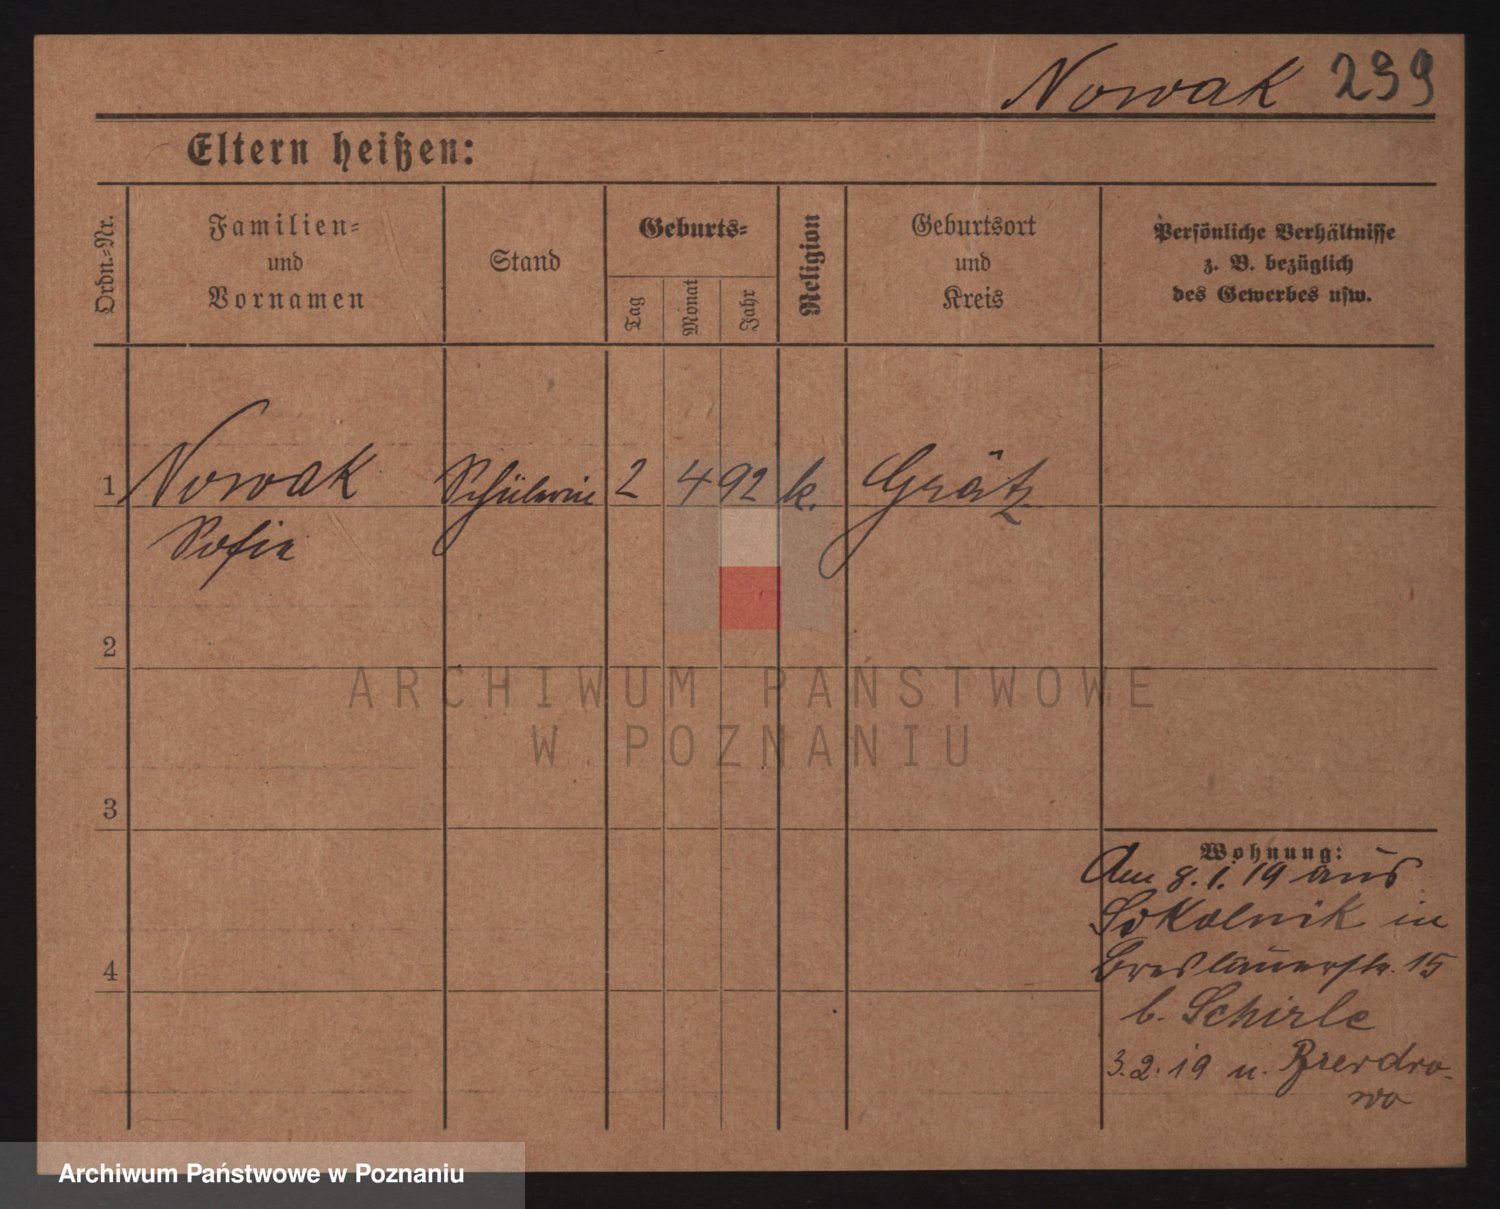 Nowak 239
Eltern heißen:
Ordn.-Nr.
Familien-
und
Vornamen
Stand
Geburts-
Tag
Monat
Jahr
Religion
Geburtsort
und
Kreis
Persönliche Verhältnisse
z. B. bezüglich
des Gewerbes usw.
1 Nowak Schülerin 2 4 92 k. Grätz
Sofie
2
ARCHIWUM PAŃSTWOWE
W POZNANIU
3
Wohnung:
Am 8.1.19 aus
Sokolnik in
Breslauerstr. 15
4
b. Schirle
3.2.19 n.
Archiwum Państwowe w Poznaniu